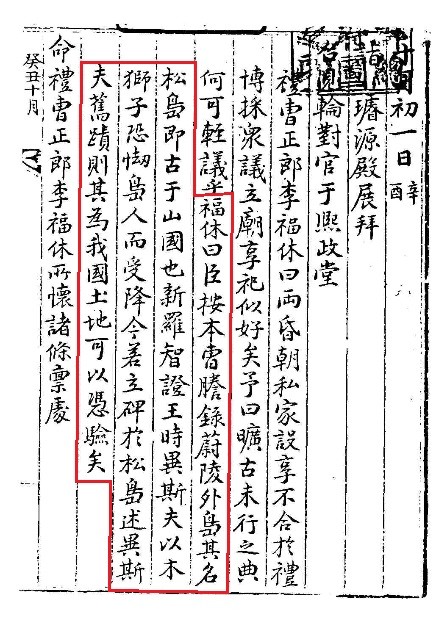 初一日辛酉
璿源殿展拜
輪對官于熙政堂
禮曹正郎李福休曰兩昏朝私家設享不合於禮
博採衆議立廟享祀似好矣予曰曠古未行之典
何可輕議乎福休曰臣按本曹謄錄蔚陵外島其名
松島即古于山國也新羅智證王時異斯夫以木
獅子恐㥘島人而受降今若立碑於松島述異斯
夫舊蹟則其為我國土地可以憑驗矣
命禮曹正郎李福休所懷諸條稟處
癸丑十月